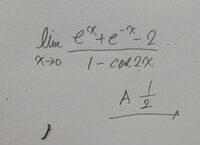 lim x→0 (eˣ + e⁻ˣ - 2) / (1 - cos 2x)
A 1/2